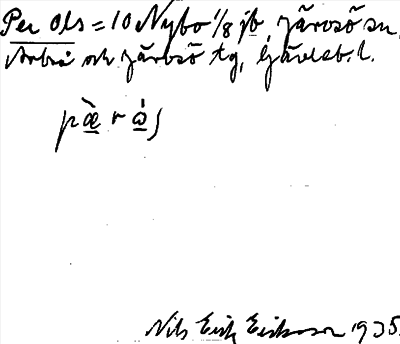 Per Ols = 10 Nybo 1/8 jb, Järvsö sn,
Arbrå och Järvsö tg, Gävleb. l.
pæ̀rós
Nils Erik Eriksson 1935